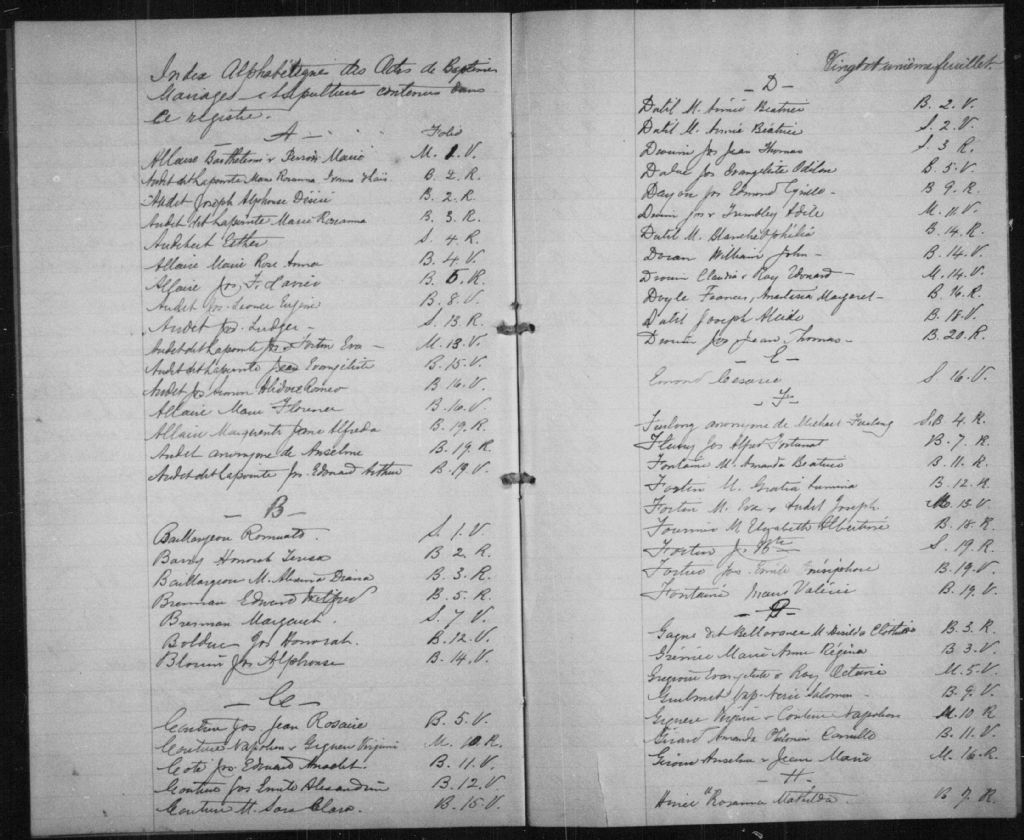 Index Alphabétique des Actes de Baptêmes
Mariages et Sépultures contenus dans
ce registre.
— A — Folio
Allaire Barthelemi & Perron Marie M. 1. V.
Audet dit Lapointe Marie Rosanna B. 2. R.
Audet Joseph Alphonse Désiré B. 2. R.
Audet dit Lapointe Marie Rosanna B. 3. R.
Audebert Esther S. 4. R.
Allaire Marie Rose Anna B. 4 V.
Allaire Jos. F. Xavier B. 5. R.
Audet Jos. Leonce Eugène B. 8. V.
Audet Jos. Ludger — S. 13. R.
Audet dit Lapointe Jos & Fortin Eva — M. 13. V.
Audet dit Lapointe Jean Evangéliste B. 15. V.
Audet Jos Romeo B. 16. V.
Allaire Marie Florence B. 16. V.
Allaire Marguerite Jane Alfreda B. 19. R.
Audet anonyme de Anselme B. 19. R.
Audet dit Lapointe Jos. Edouard Arthur B. 19. V.
— B —
Baillargeon Romuald. S. 1. V.
Barry Honorah Teresa B. 2. R.
Baillargeon M. Alexina Diana B. 3. R.
Brennan Edward Wilfred B. 5. R.
Brennan Margaret. S. 7. V.
Bolduc Jos Honorah. B. 12. V.
Blouin Jos Alphonse B. 14. V.
— C —
Couture Jos Jean Rosaire B. 5. V.
Couture Napoléon & Giguere Virginie M. 10. R.
Coté Jos Edouard Anaclet. B. 11. V.
Couture Jos Emile Alexandre B. 12. V
Couture M. Sara Clara. B. 15. V.
Vingt et unième feuillet.
— D —
Dutil M. Aimée Béatrice B. 2. V.
Dutil M. Aimée Béatrice S. 2. V.
Drouin Jos Jean Thomas S. 3 R.
Jos Evangéliste Odilon B. 5. V.
Doyon Jos Edmond Cyrille — B 9. R.
Drouin Jos & Tremblay Adèle M. 11. V.
Dutil M. Blanche Ophélia B. 14. R.
Doran William John — B. 14. V.
Drouin Claudia & Roy Edouard — M. 14. V.
Doyle Frances, Anastasia Margaret — B. 16. R.
Dutil Joseph Alcide B. 18. V.
Drouin Jos Jean Thomas — B. 20. R.
— E —
Emond Cesarie S 16. V.
— F —
Furlong anonyme de Michael Furlong S. B. 4. R.
Fleury Jos Alfred Fortunat B. 7. R.
Fontaine M. Amanda Beatrice B. 11. R.
Fortin M. Gratia Lumina B. 12. R
Fortin M. Eva & Audet Joseph. M. 13. V
Fournier M. Elizabeth Albertine B. 18. R.
Fortin J. Bte S. 19. R.
Fortin Jos. Emile Onésiphore B. 19. V
Fontaine Marie Valérie B. 19. V
— G —
Gagné dit Bellavance M. Clothilde B. 3. R.
Grenier Marie Anne Régina B. 3. V.
Gregoire Evangeliste & Roy Octavie M. 5. V
Guilmet Nap. Nérée Salomon — B. 9. V.
Giguere Virginie & Couture Napoléon M. 10. R
Girard Amanda Philomène Camille B. 11. V.
Giroux Anselme & Jean Marie M. 16. R.
— H —
Rosanna Mathilda B. 7. R.